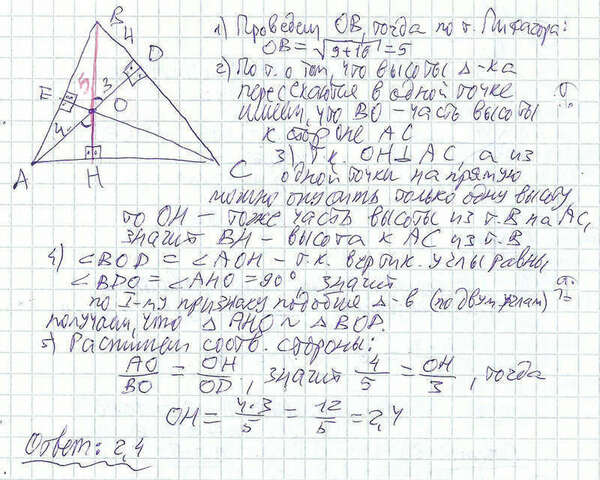 1) Проведем OB, тогда по т. Пифагора:
OB = √9+16 = 5
2) По т. о том, что высоты Δ-ка
пересекаются в одной точке
имеем, что BO – часть высоты
к стороне AC
3) Т.к. OH⊥AC, а из
одной точки на прямую
можно опустить только одну высоту,
то OH – тоже часть высоты из т. B на AC,
значит BH – высота к AC из т. B
4) ∠BOD = ∠AOH – т.к. вертик. углы равны
∠BDO = ∠AHO = 90°, значит
по I-му признаку подобие Δ-в (по двум углам)
получаем, что ΔAHO ~ ΔBOD.
5) Распишем соотв. стороны:
AO/BO = OH/OD, значит 4/5 = OH/3, тогда
OH = 4·3/5 = 12/5 = 2,4
Ответ: 2,4
B
4
D
3
5
E
O
4
A
H
C